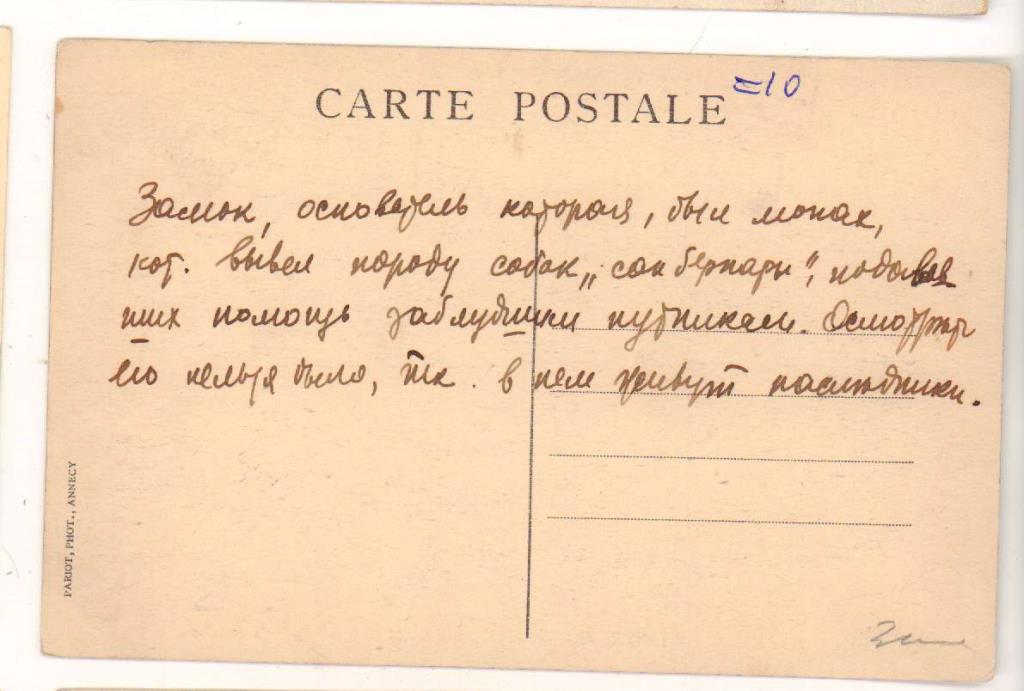 CARTE POSTALE
=10
Замок, основатель которага, был монах,
кот. вывел породу собак „сан бернары", подавав
ших помощь заблудшим путникам. Осмотреть
его нельзя было, т.к. в нем живут наследники.
PARIOT, PHOT., ANNECY